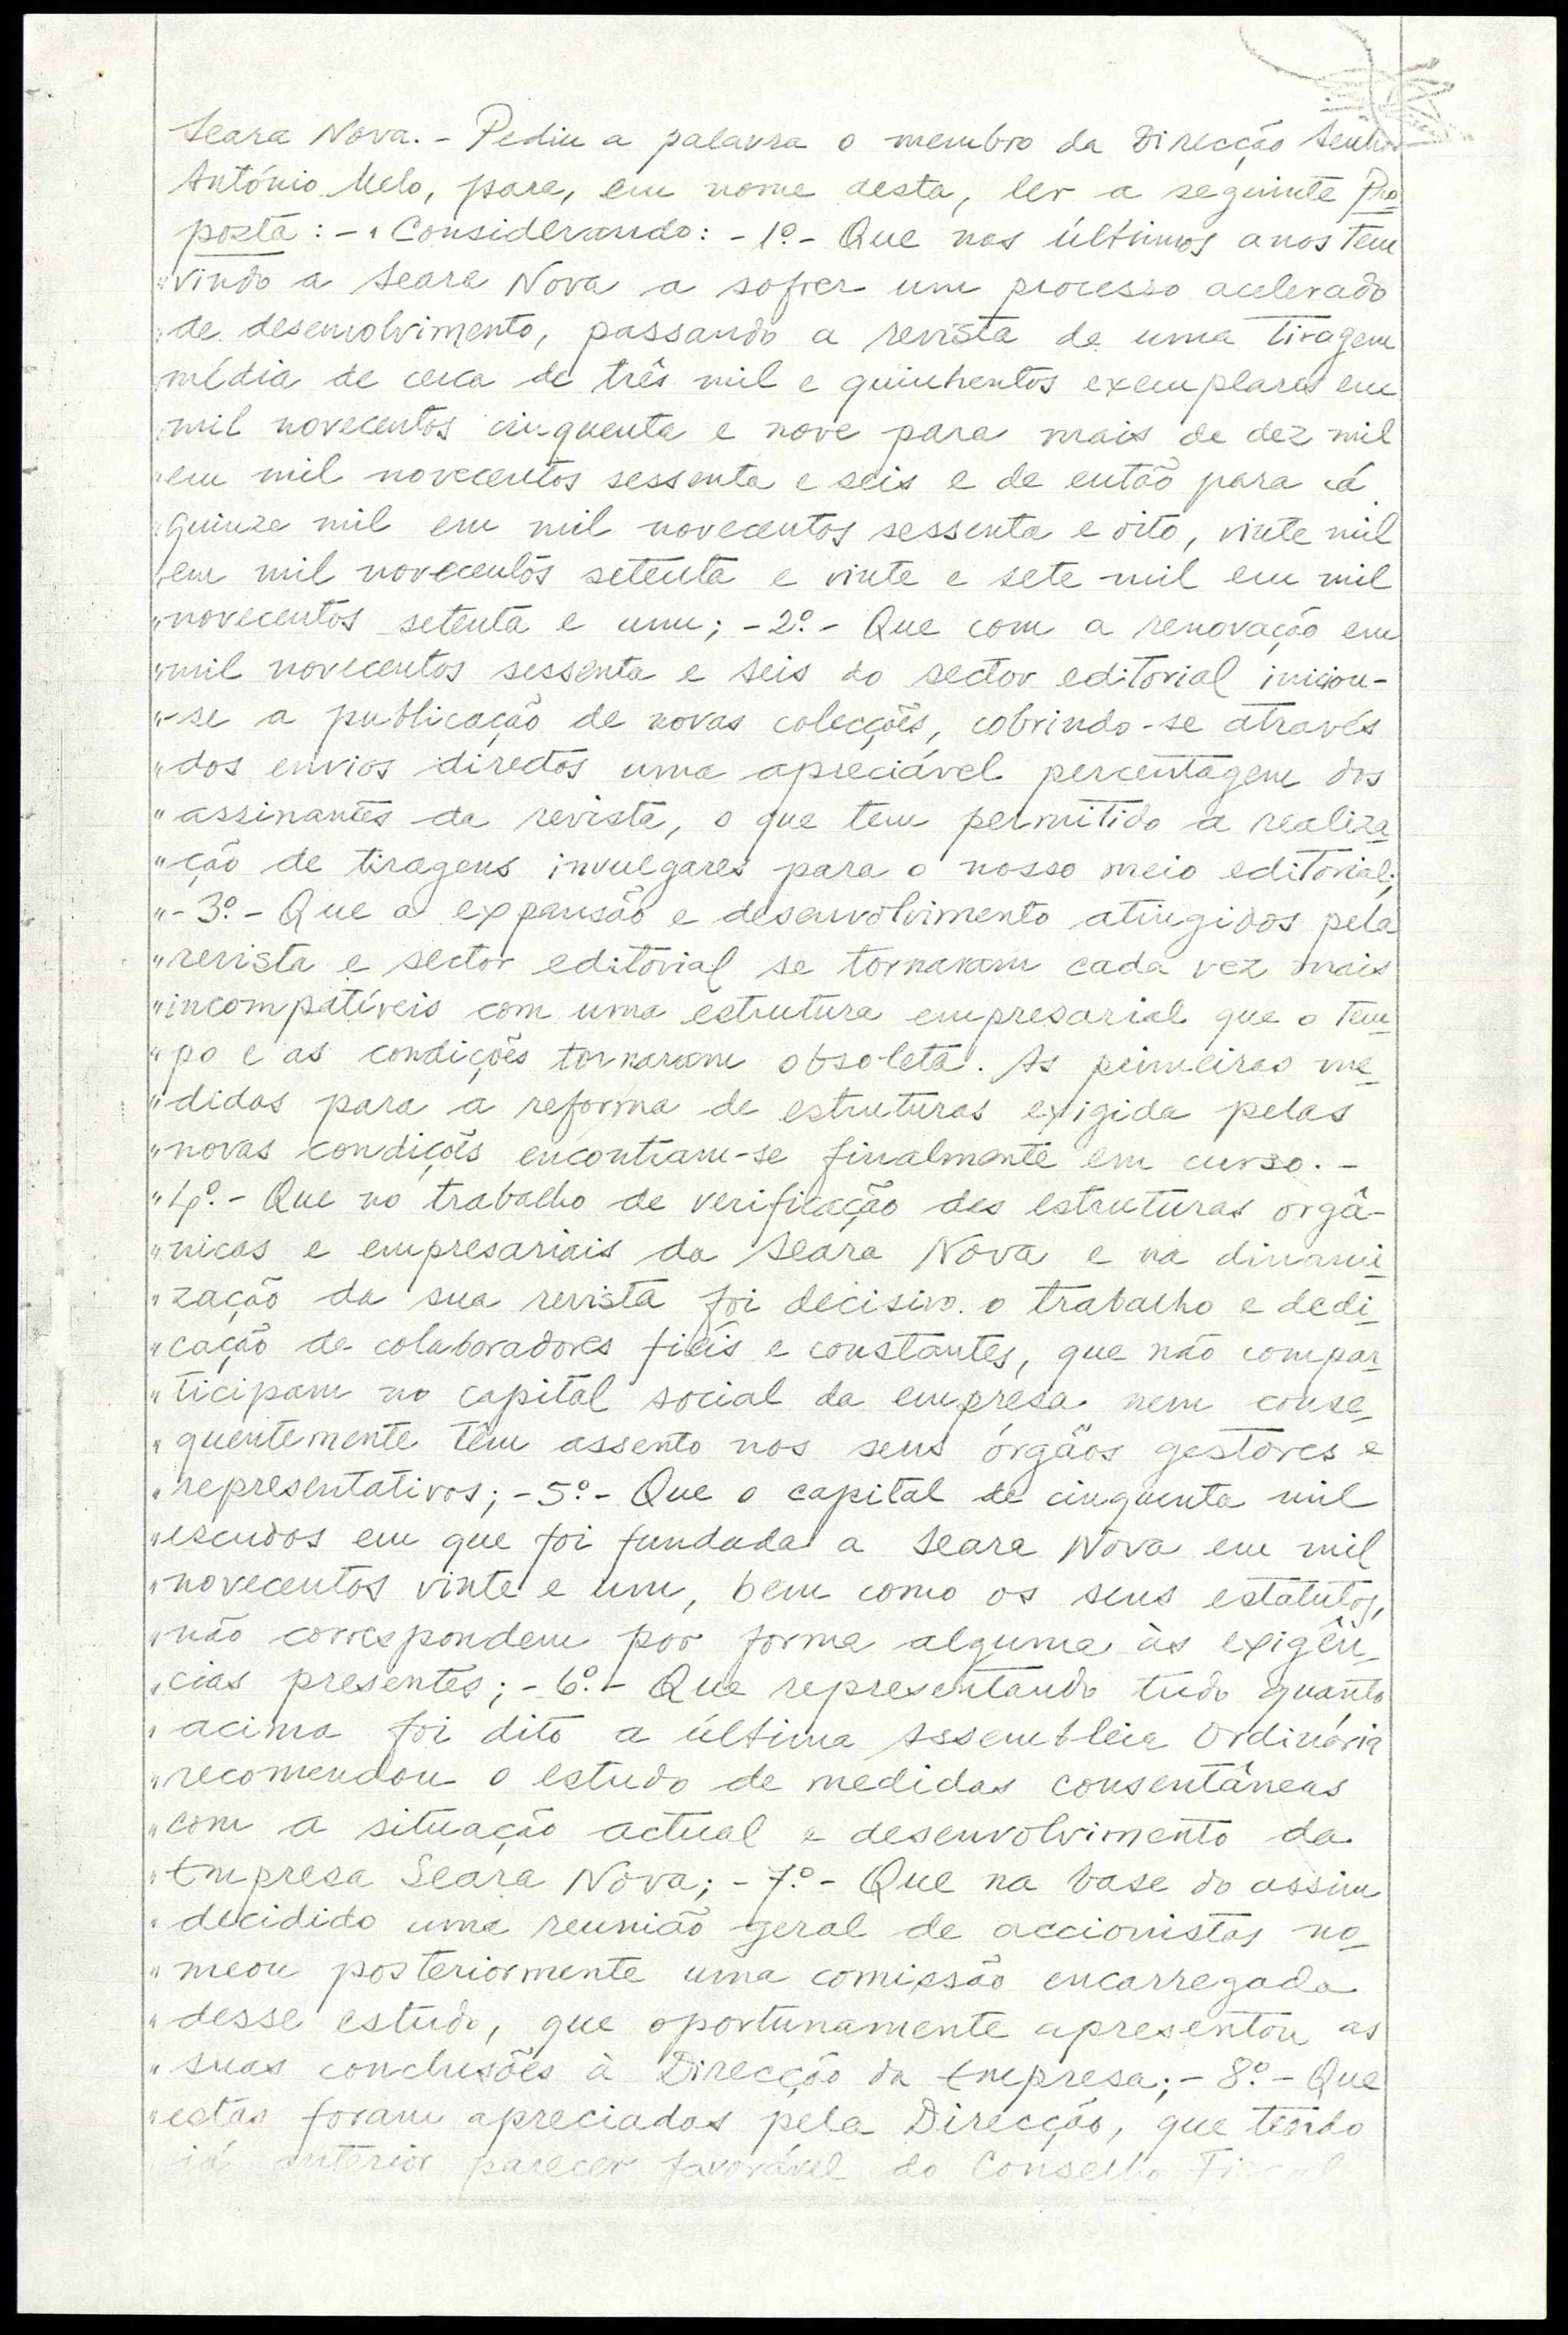 Seara Nova. - Pediu a palavra o membro da Direcção Senhor
António Melo, para, em nome desta, ler a seguinte Pro
posta: - "Considerando: - 1º. - Que nos últimos anos tem
"vindo a Seara Nova a sofrer um processo acelerado
"de desenvolvimento, passando a revista de uma tiragem
"média de cerca de três mil e quinhentos exemplares em
"mil novecentos cinquenta e nove para mais de dez mil
"em mil novecentos sessenta e seis e de então para cá
"quinze mil em mil novecentos sessenta e oito, vinte mil
"em mil novecentos setenta e vinte e sete mil em mil
"novecentos setenta e um; - 2º. - Que com a renovação em
"mil novecentos sessenta e seis do sector editorial iniciou-
"-se a publicação de novas colecções, cobrindo-se através
"dos envios directos uma apreciável percentagem dos
"assinantes da revista, o que tem permitido a realiza
"ção de tiragens invulgares para o nosso meio editorial;
"- 3º. - Que a expansão e desenvolvimento atingidos pela
"revista e sector editorial se tornaram cada vez mais
"incompatíveis com uma estrutura empresarial que o tem
"po e as condições tornaram obsoleta. As primeiras me
"didas para a reforma de estruturas exigida pelas
"novas condições encontram-se finalmente em curso. -
"4º. - Que no trabalho de verificação das estruturas orgâ-
"nicas e empresariais da Seara Nova e na dinami
"zação da sua revista foi decisivo o trabalho e dedi
"cação de colaboradores fiéis e constantes, que não compar
"ticipam no capital social da empresa nem conse
"quentemente têm assento nos seus órgãos gestores e
"representativos; - 5º. - Que o capital de cinquenta mil
"escudos em que foi fundada a Seara Nova em mil
"novecentos vinte e um, bem como os seus estatutos,
"não correspondem por forma alguma às exigên
"cias presentes; - 6º. - Que representando tudo quanto
"acima foi dito a última Assembleia Ordinária
"recomendou o estudo de medidas consentâneas
"com a situação actual e desenvolvimento da
"Empresa Seara Nova; - 7º. - Que na base do assim
"decidido uma reunião geral de accionistas no
"meou posteriormente uma comissão encarregada
"desse estudo, que oportunamente apresentou as
"suas conclusões à Direcção da Empresa; - 8º. - Que
"estas foram apreciadas pela Direcção, que tendo
já anterior parecer favorável do Conselho Fiscal